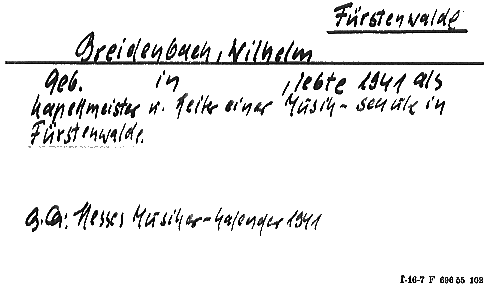 Fürstenwalde
Breidenbach, Wilhelm
Geb. in , lebte 1941 als
Kapellmeister u. Leiter einer Musik-schule in
Fürstenwalde.
Hesses Musiker-Kalender 1941
I-16-7 F 696 55 102